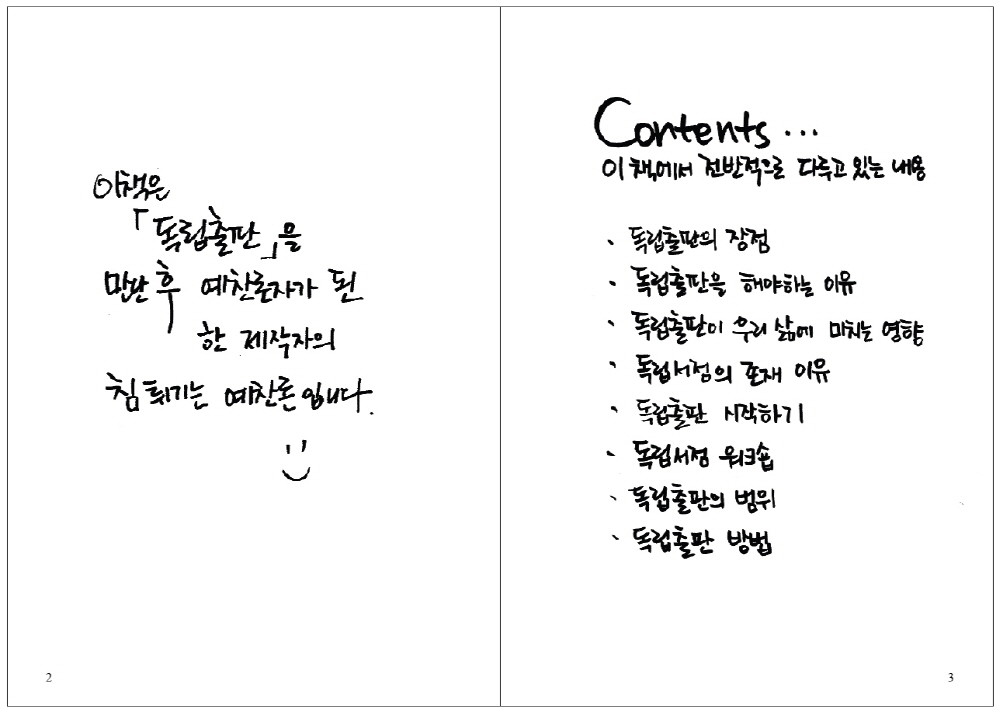 이책은
「독립출판」을
만난 후 예찬론자가 된
한 제작자의
침 튀기는 예찬론입니다.
2
Contents...
이 책에서 전반적으로 다루고 있는 내용
· 독립출판의 장점
· 독립출판을 해야하는 이유
· 독립출판이 우리 삶에 미치는 영향
· 독립서점의 존재 이유
· 독립출판 시작하기
· 독립서점 워크숍
· 독립출판의 범위
· 독립출판 방법
3